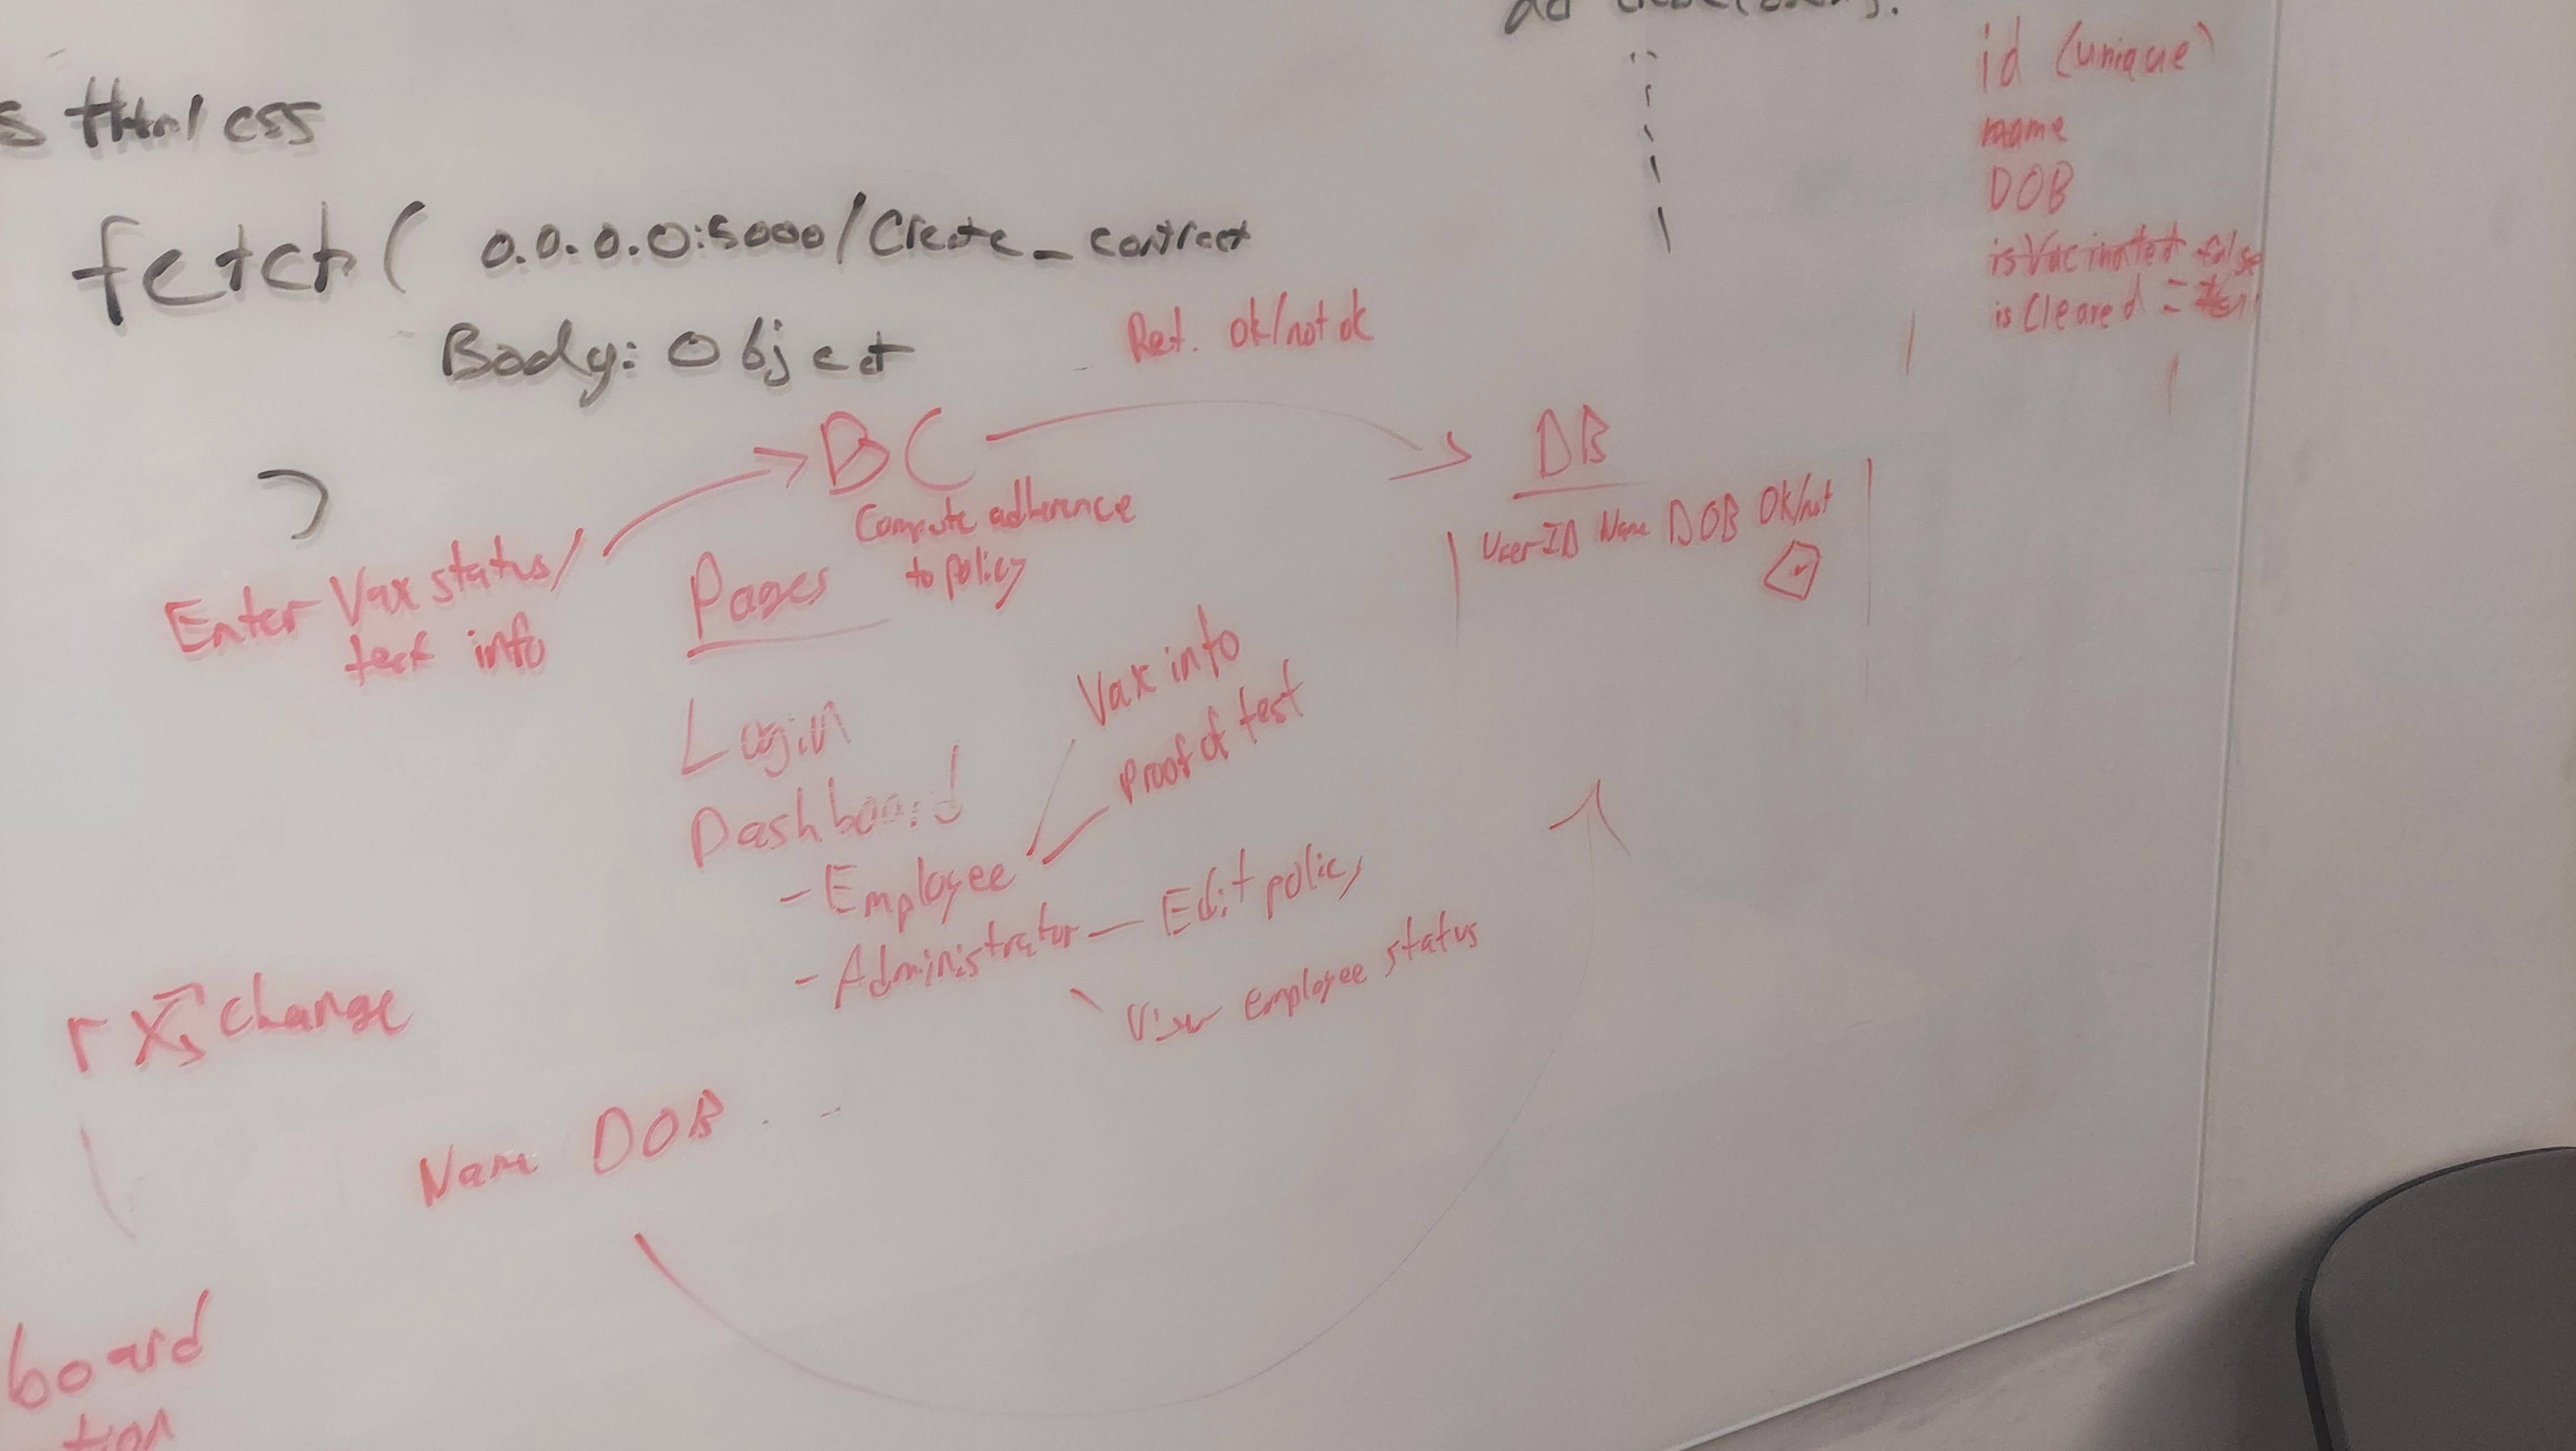 Html css
fetch( 0.0.0.0:5000/Create_contract
Body: Object
)
id (unique)
name
DOB
isVacinated false
is Cleared =
Ret. ok/not ok
BC
Compute adherence
to policy
DB
User ID Name DOB Ok/not
Enter Vax status/
test info
Pages
Login
Dashboard
- Employee
Vax info
Proof of test
- Administrator — Edit policy
View employee status
change
Name DOB . --
board
tion